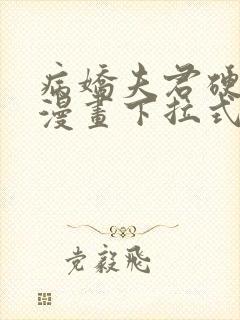 病嬌夫君硬
漫畫下拉式
党毅飛